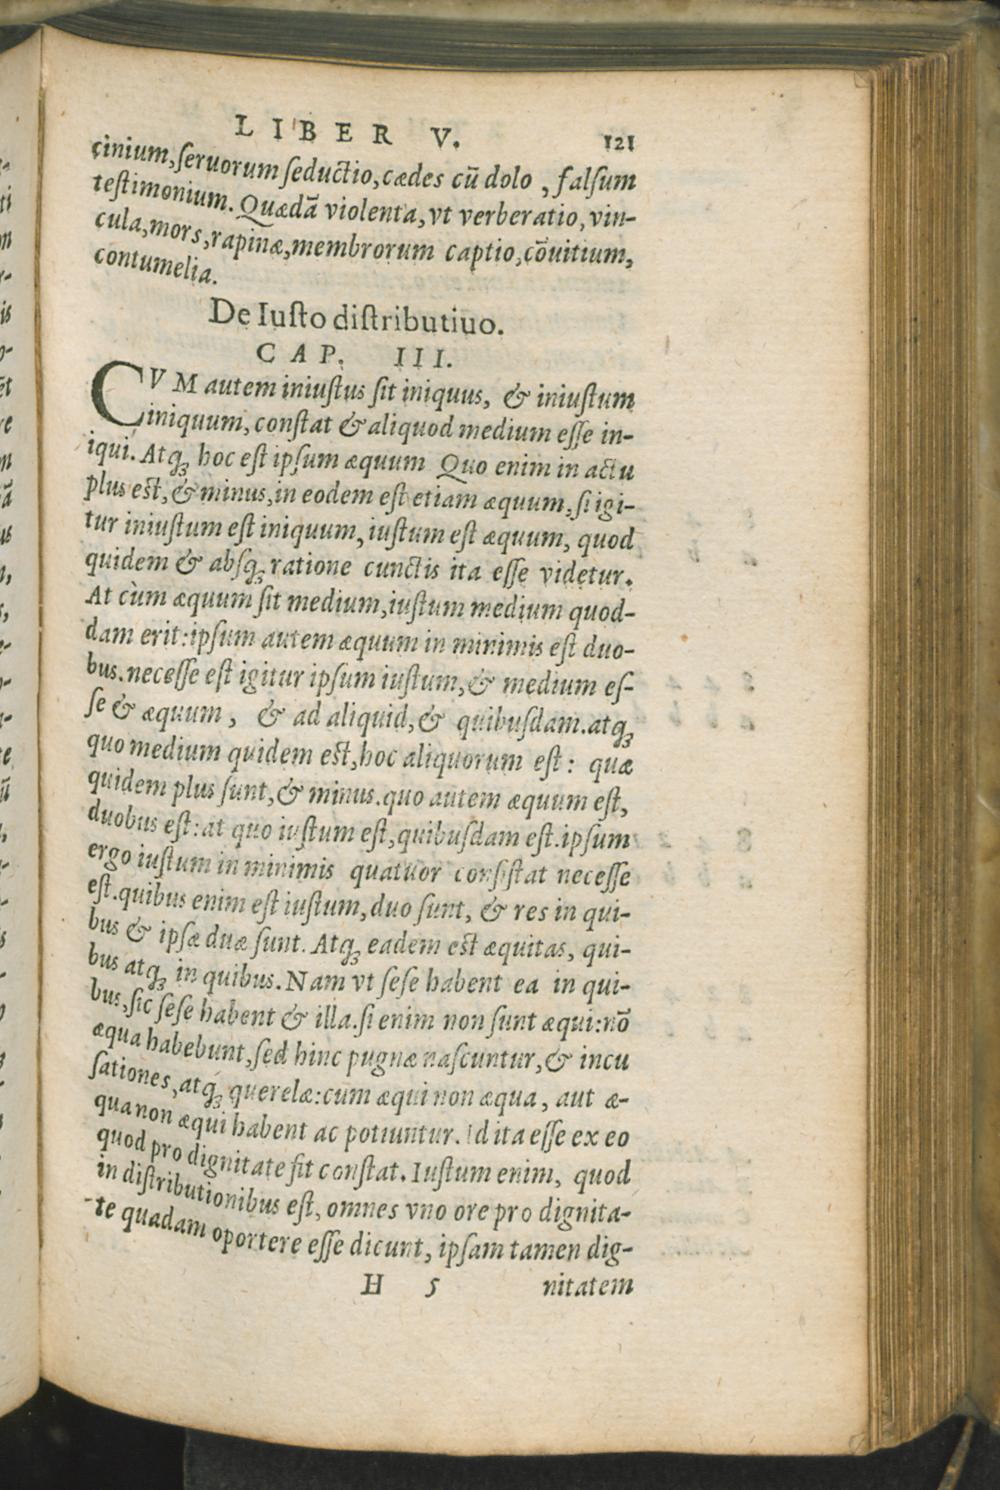 LIBER V. 121
cinium, ſeruorum ſeductio, cædes cū dolo, falſum
teſtimonium. Quædā violenta, vt verberatio, vin-
cula, mors, rapinæ, membrorum captio, cōuitium,
contumelia.
De Iuſto diſtributiuo.
CAP. III.
CVM autem iniuſtus ſit iniquus, & iniuſtum
iniquum, conſtat & aliquod medium eſſe in-
iqui. Atq; hoc eſt ipſum æquum Quo enim in actu
plus est, & minus, in eodem eſt etiam æquum, ſi igi-
tur iniuſtum eſt iniquum, iuſtum eſt æquum, quod
quidem & abſq; ratione cunctis ita eſſe videtur.
At cùm æquum ſit medium, iuſtum medium quod-
dam erit: ipſum autem æquum in minimis eſt duo-
bus. neceſſe eſt igitur ipſum iuſtum, & medium eſ-
ſe & æquum, & ad aliquid, & quibuſdam. atq;
quo medium quidem est, hoc aliquorum eſt: quæ
quidem plus ſunt, & minus. quo autem æquum eſt,
duobus eſt: at quo iuſtum eſt, quibuſdam eſt. ipſum
ergo iuſtum in minimis quatuor conſiſtat neceſſe
eſt. quibus enim eſt iuſtum, duo ſunt, & res in qui-
bus & ipſæ duæ ſunt. Atq; eadem est æquitas, qui-
bus atq; in quibus. Nam vt ſeſe habent ea in qui-
bus, ſic ſeſe habent & illa. ſi enim non ſunt æqui: nō
æqua habebunt, ſed hinc pugnæ naſcuntur, & incu
ſationes, atq; querelæ: cum æqui non æqua, aut æ-
qua non æqui habent ac potiuntur. Id ita eſſe ex eo
quod pro dignitate ſit conſtat. Iuſtum enim, quod
in diſtributionibus eſt, omnes vno ore pro dignita-
te quadam oportere eſſe dicunt, ipſam tamen dig-
H 5 nitatem